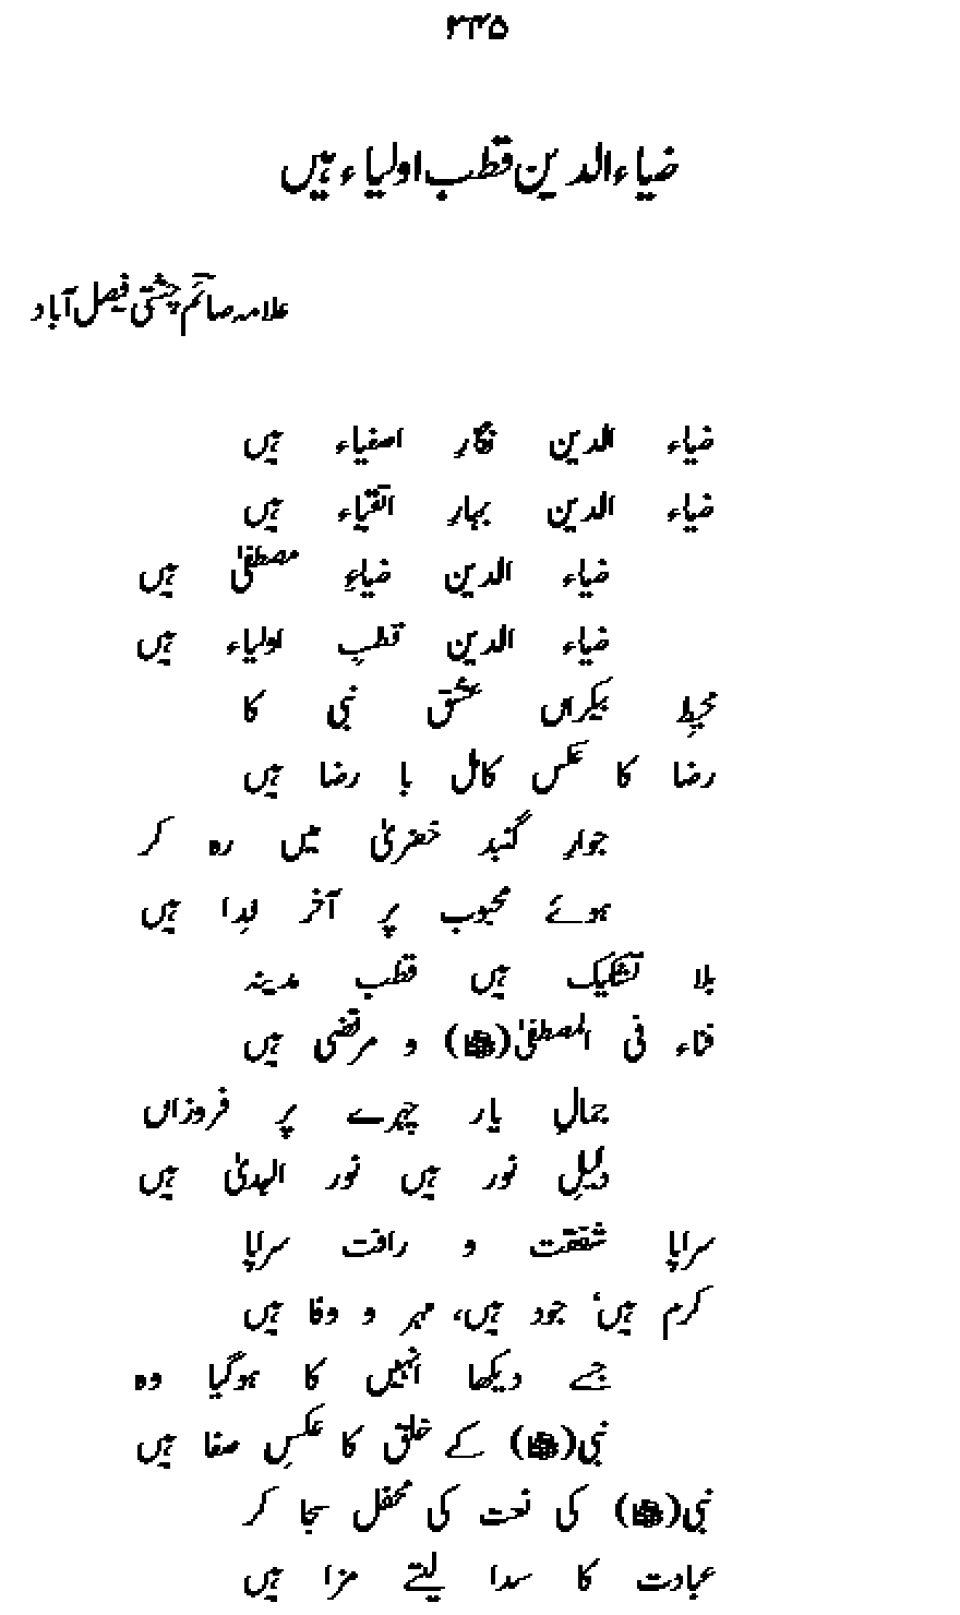 ۲۳۵
ضیاء الدین قطب اولیاء ہیں
علامہ صائم چشتی فیصل آباد
ضیاء الدین نگارِ اصفیاء ہیں
ضیاء الدین بہارِ اتقیاء ہیں
ضیاء الدین ضیاءِ مصطفیٰ ہیں
ضیاء الدین قطبِ اولیاء ہیں
محیطِ بیکراں عشق نبی کا
رضا کا عکس کامل با رضا ہیں
جوارِ گنبد خضریٰ میں رہ کر
ہوئے محبوب پر آخر فِدا ہیں
بلا تشکیک ہیں قطب مدینہ
فناء فی المصطفیٰ(ﷺ) و مرتضٰی ہیں
جمالِ یار چہرے پر فروزاں
دلیلِ نور ہیں نور الہدیٰ ہیں
سراپا شفقت و رافت سراپا
کرم ہیں، جود ہیں، مہر و وفا ہیں
جسے دیکھا انہیں کا ہوگیا وہ
نبی(ﷺ) کے خلق کا عکسِ صفا ہیں
نبی(ﷺ) کی نعت کی محفل سجا کر
عبادت کا سدا لیتے مزا ہیں